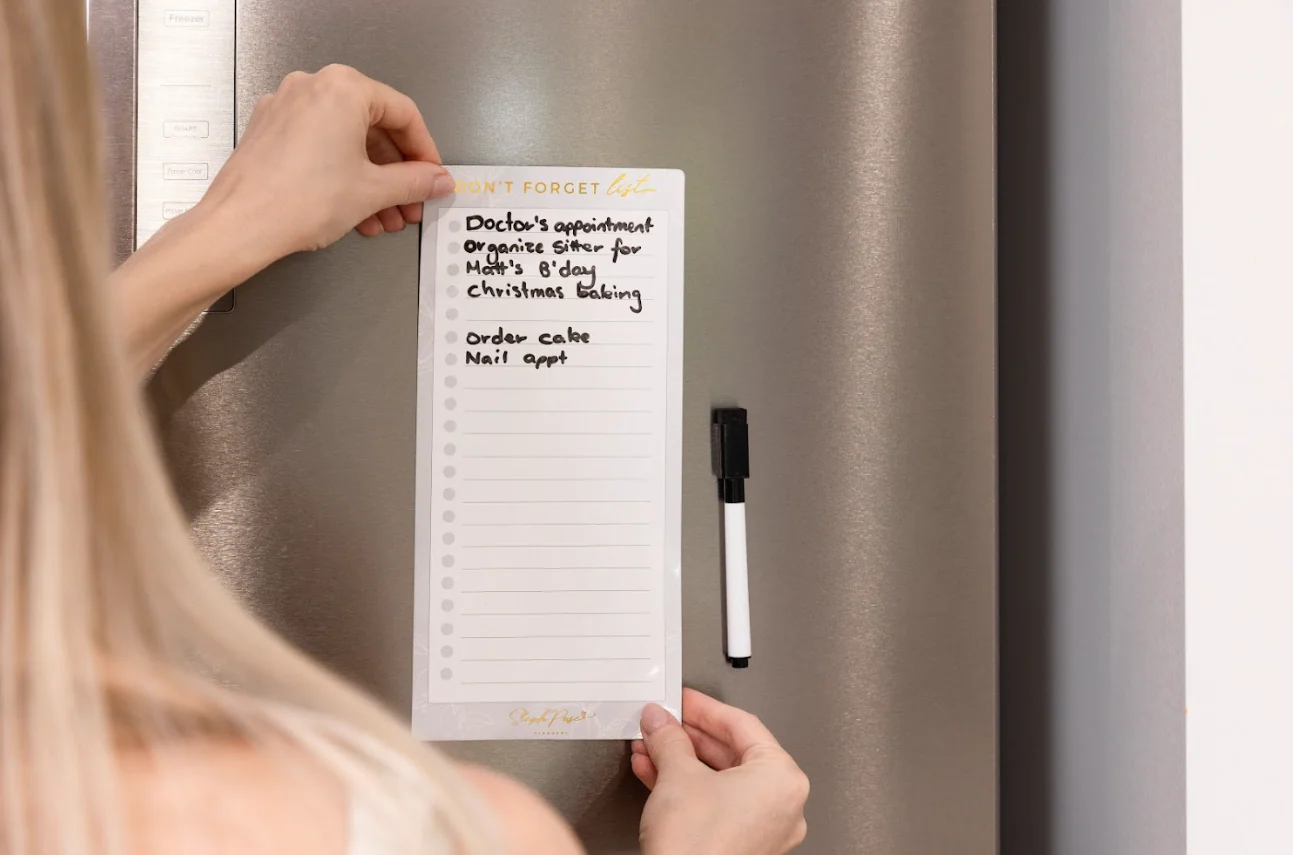 Freezer
DON'T FORGET list
Doctor's appointment
Organize Sitter for
Matt's B'day
Christmas baking
Order cake
Nail appt